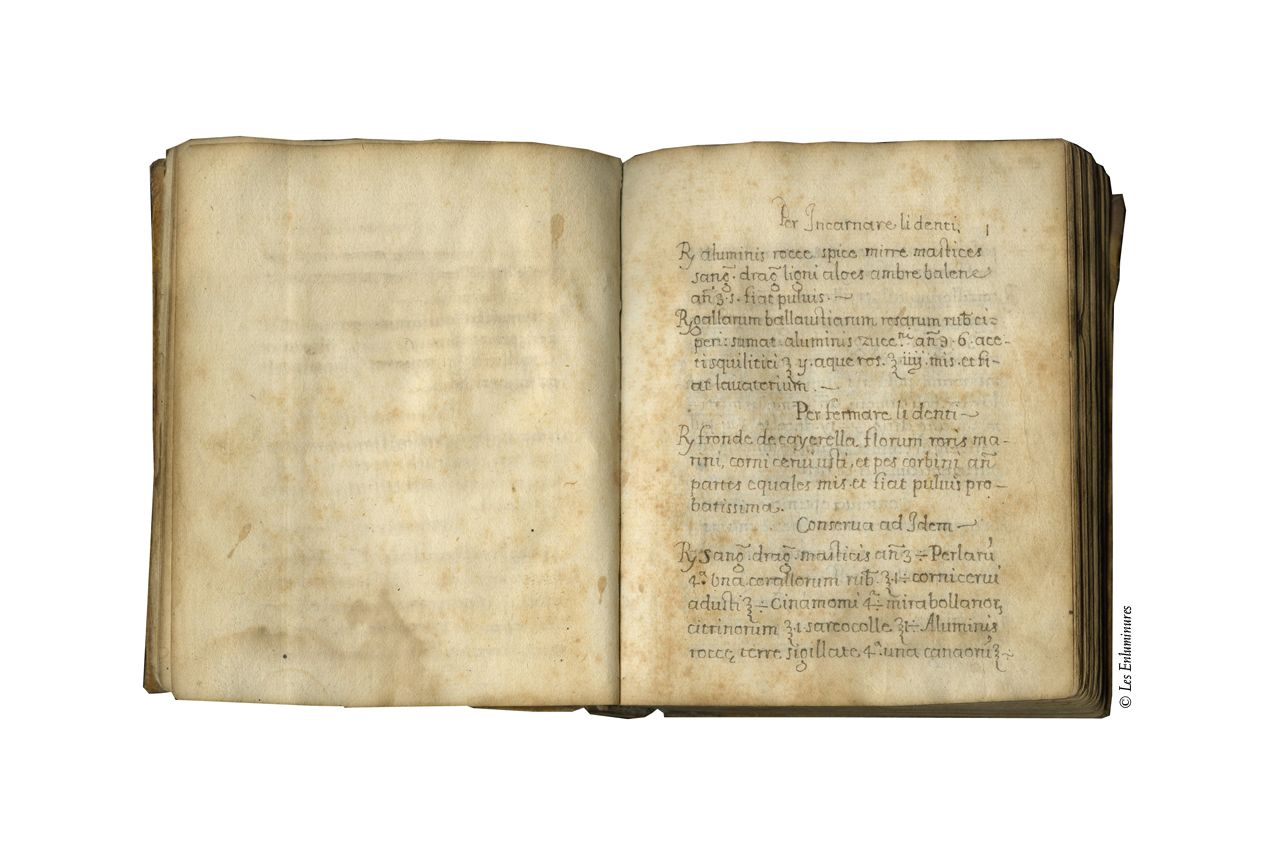 Per Incarnare li denti.
1
℞ aluminis rocce spice mirre mastices
sang̃. drag̃ ligni aloes ambre balene
añ ʒ. s. fiat puluis. ~
℞ gallarum ballaustiarum rosarum rub̃ ci-
peri: sumat aluminis zucc. añ 6. ace-
ti squilitici ʒ y. aque ros. ʒ iiij. mis. et fi-
at lauaterium. ~
Per fermare li denti ~
℞ fronde de cayerella florum roris ma-
rini, corni cerui usti, et pes corbini añ
partes equales mis. et fiat puluis pro-
batissima.
Conserua ad Idem ~
℞ Sang̃. drag̃. masticis añ ʒ ÷ Perlarũ
4.ª una corallorum rub̃. ʒ. 1 ÷ corni cerui
adusti ʒ ÷ Cinamomi 4.ª ÷ mirabollanoꝝ
citrinorum ʒ. 1 sarcocolle ʒ 1 ÷ Aluminis
rocce, terre sigillate. 4.ª una
© Les Enluminures